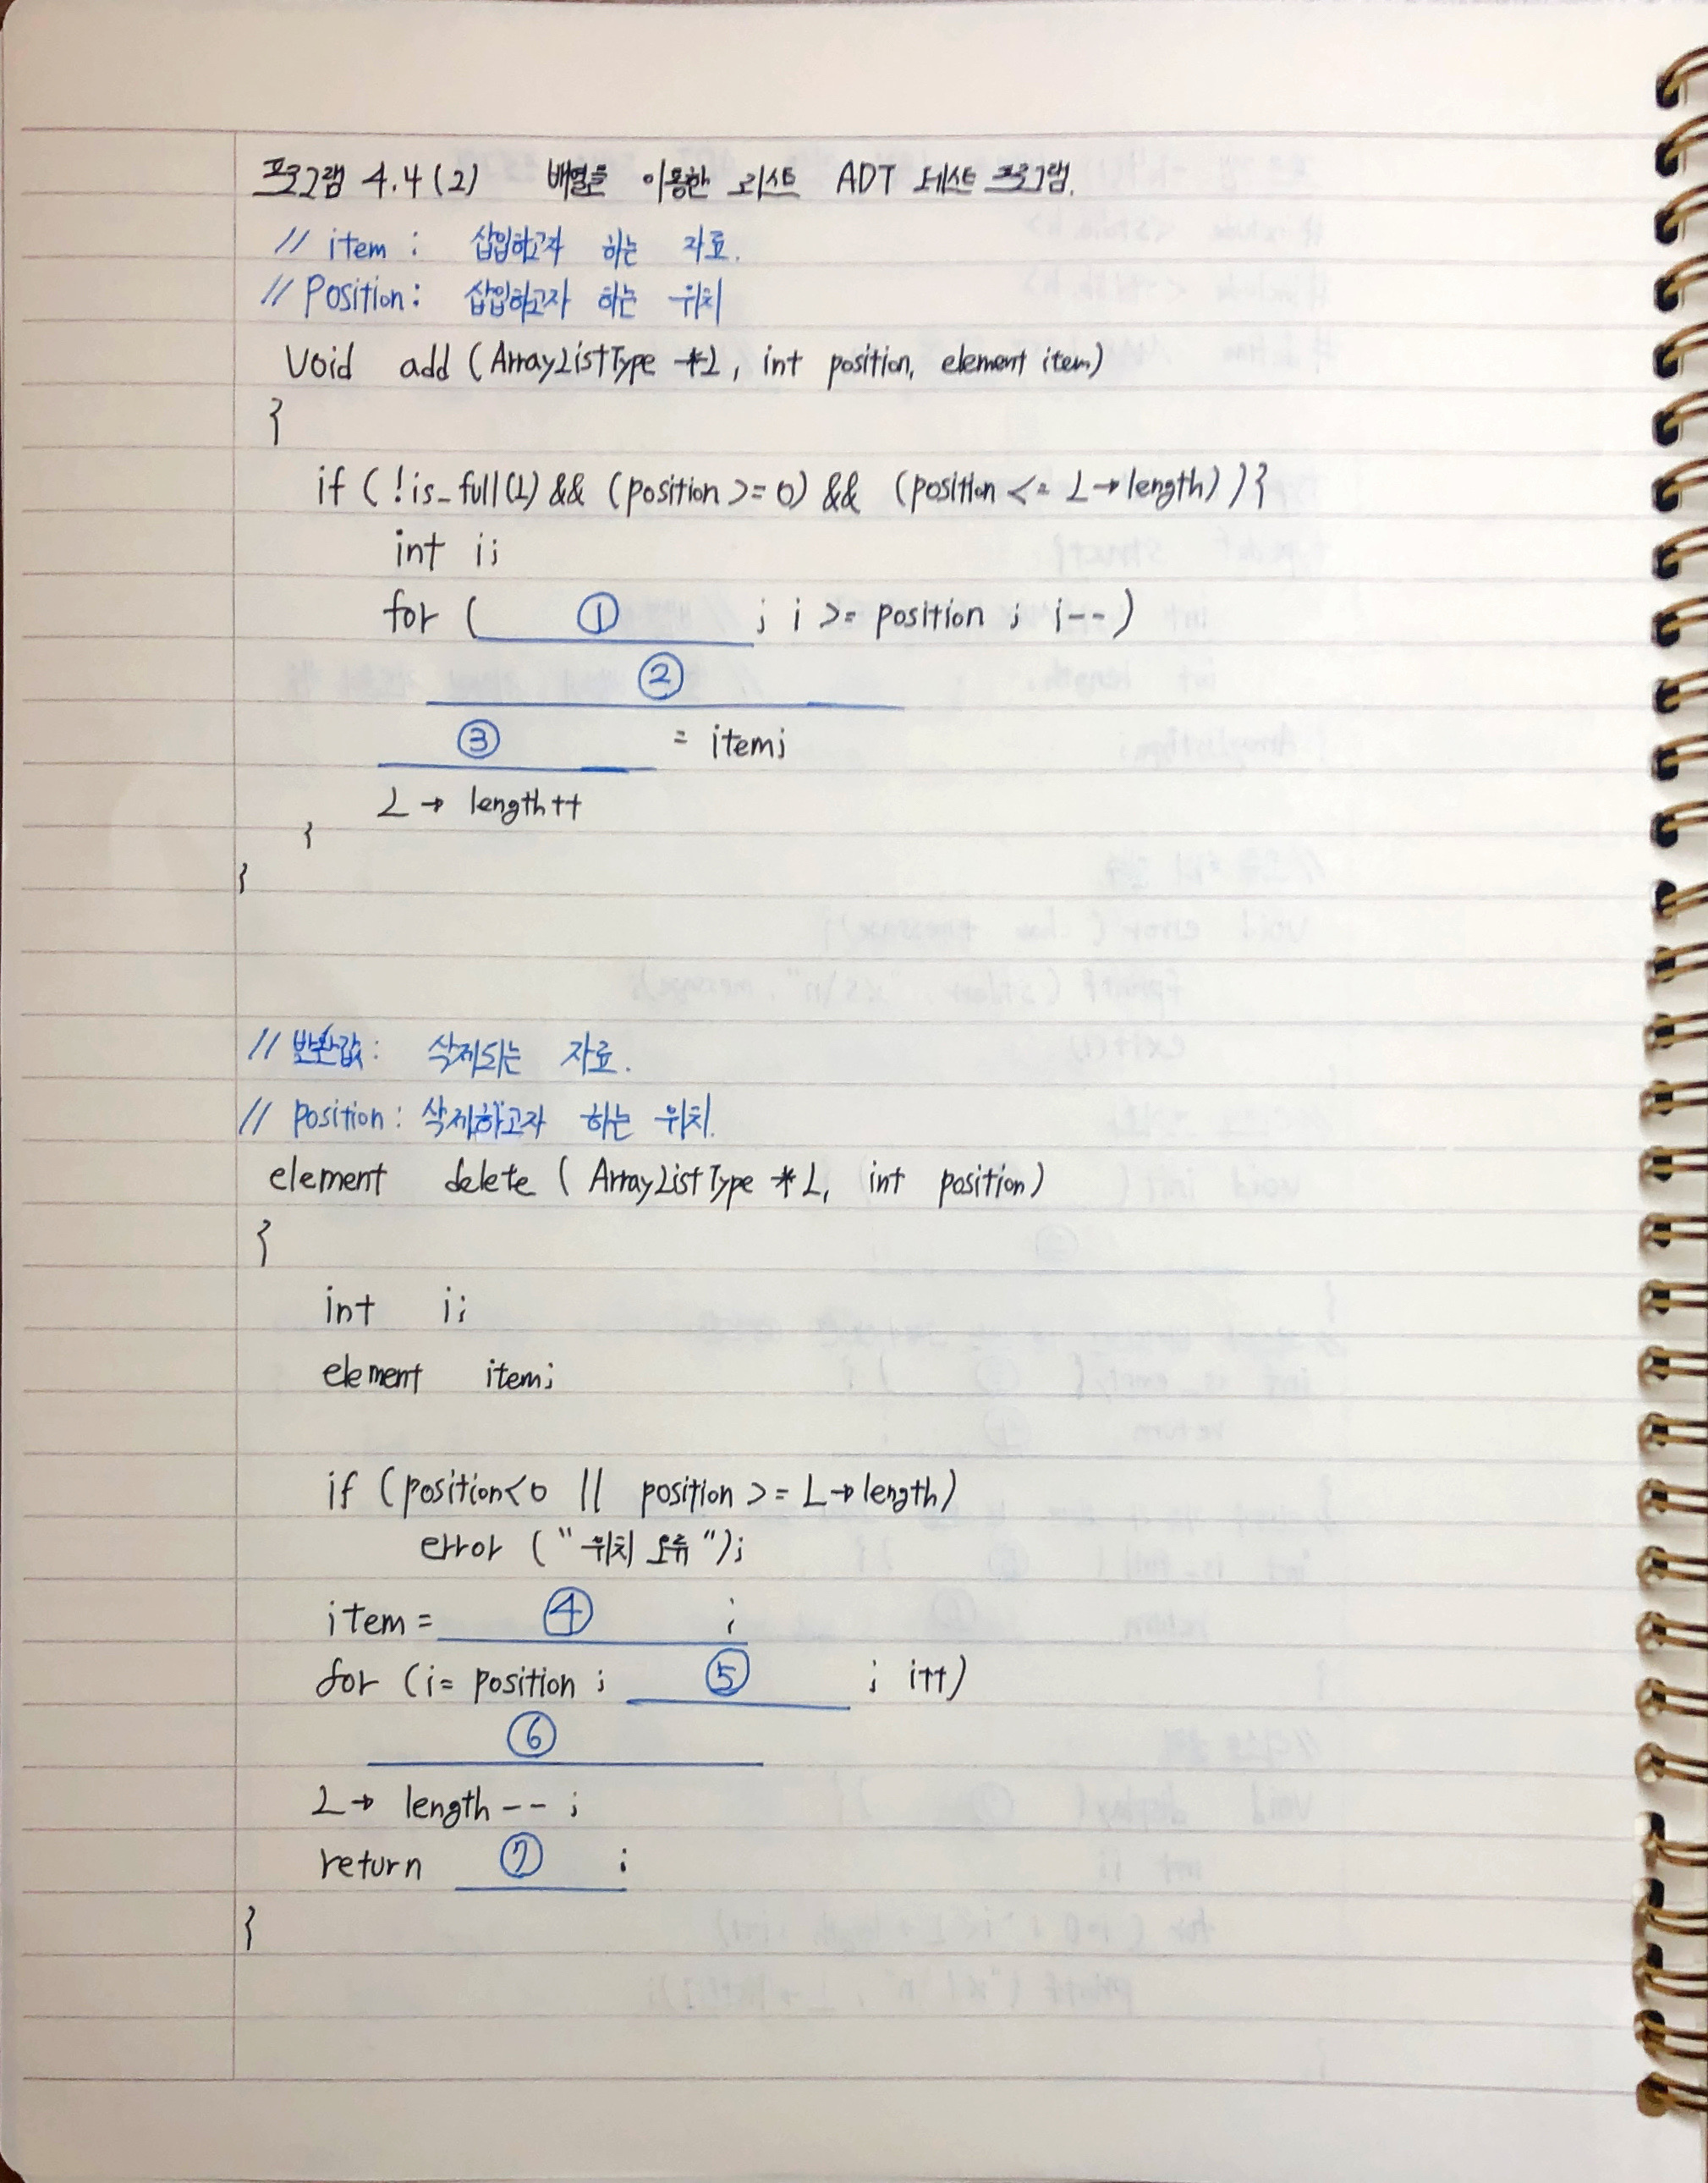 프로그램 4.4 (2) 배열을 이용한 리스트 ADT 테스트 프로그램.
// item : 삽입하고자 하는 자료.
// Position : 삽입하고자 하는 위치
Void add (ArrayListType *L, int position, element item)
{
if ( !is_full(L) && (position >= 0) && (position <= L→length) ) {
int i;
for ( ① ; i >= position ; i-- )
②
③ = item;
L → length++
}
}
// 반환값 : 삭제되는 자료.
// position : 삭제하고자 하는 위치.
element delete ( ArrayListType *L, int position )
{
int i;
element item;
if (position<0 || position >= L→length)
error ( "위치 오류" );
item = ④ ;
for (i= position ; ⑤ ; i++)
⑥
L→ length -- ;
return ⑦ ;
}